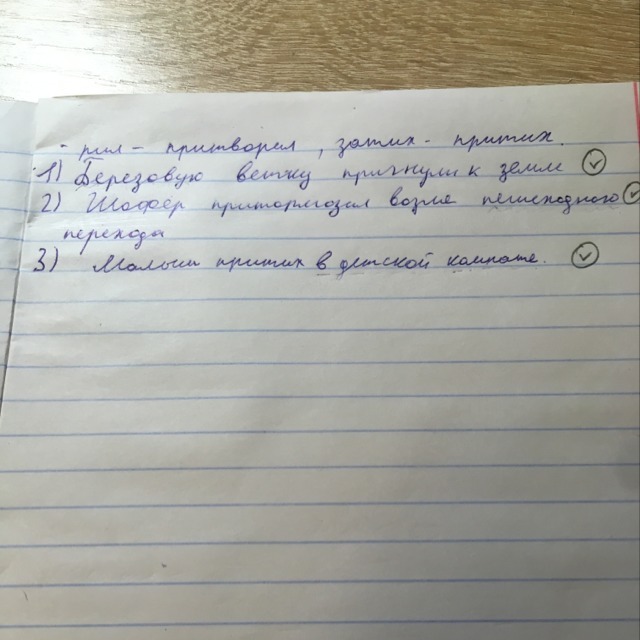 - рил - притворил, затих - притих.
1) Березовую ветку пригнули к земле
2) Шофёр притормозил возле пешеходного
перехода
3) Малыш притих в детской комнате.